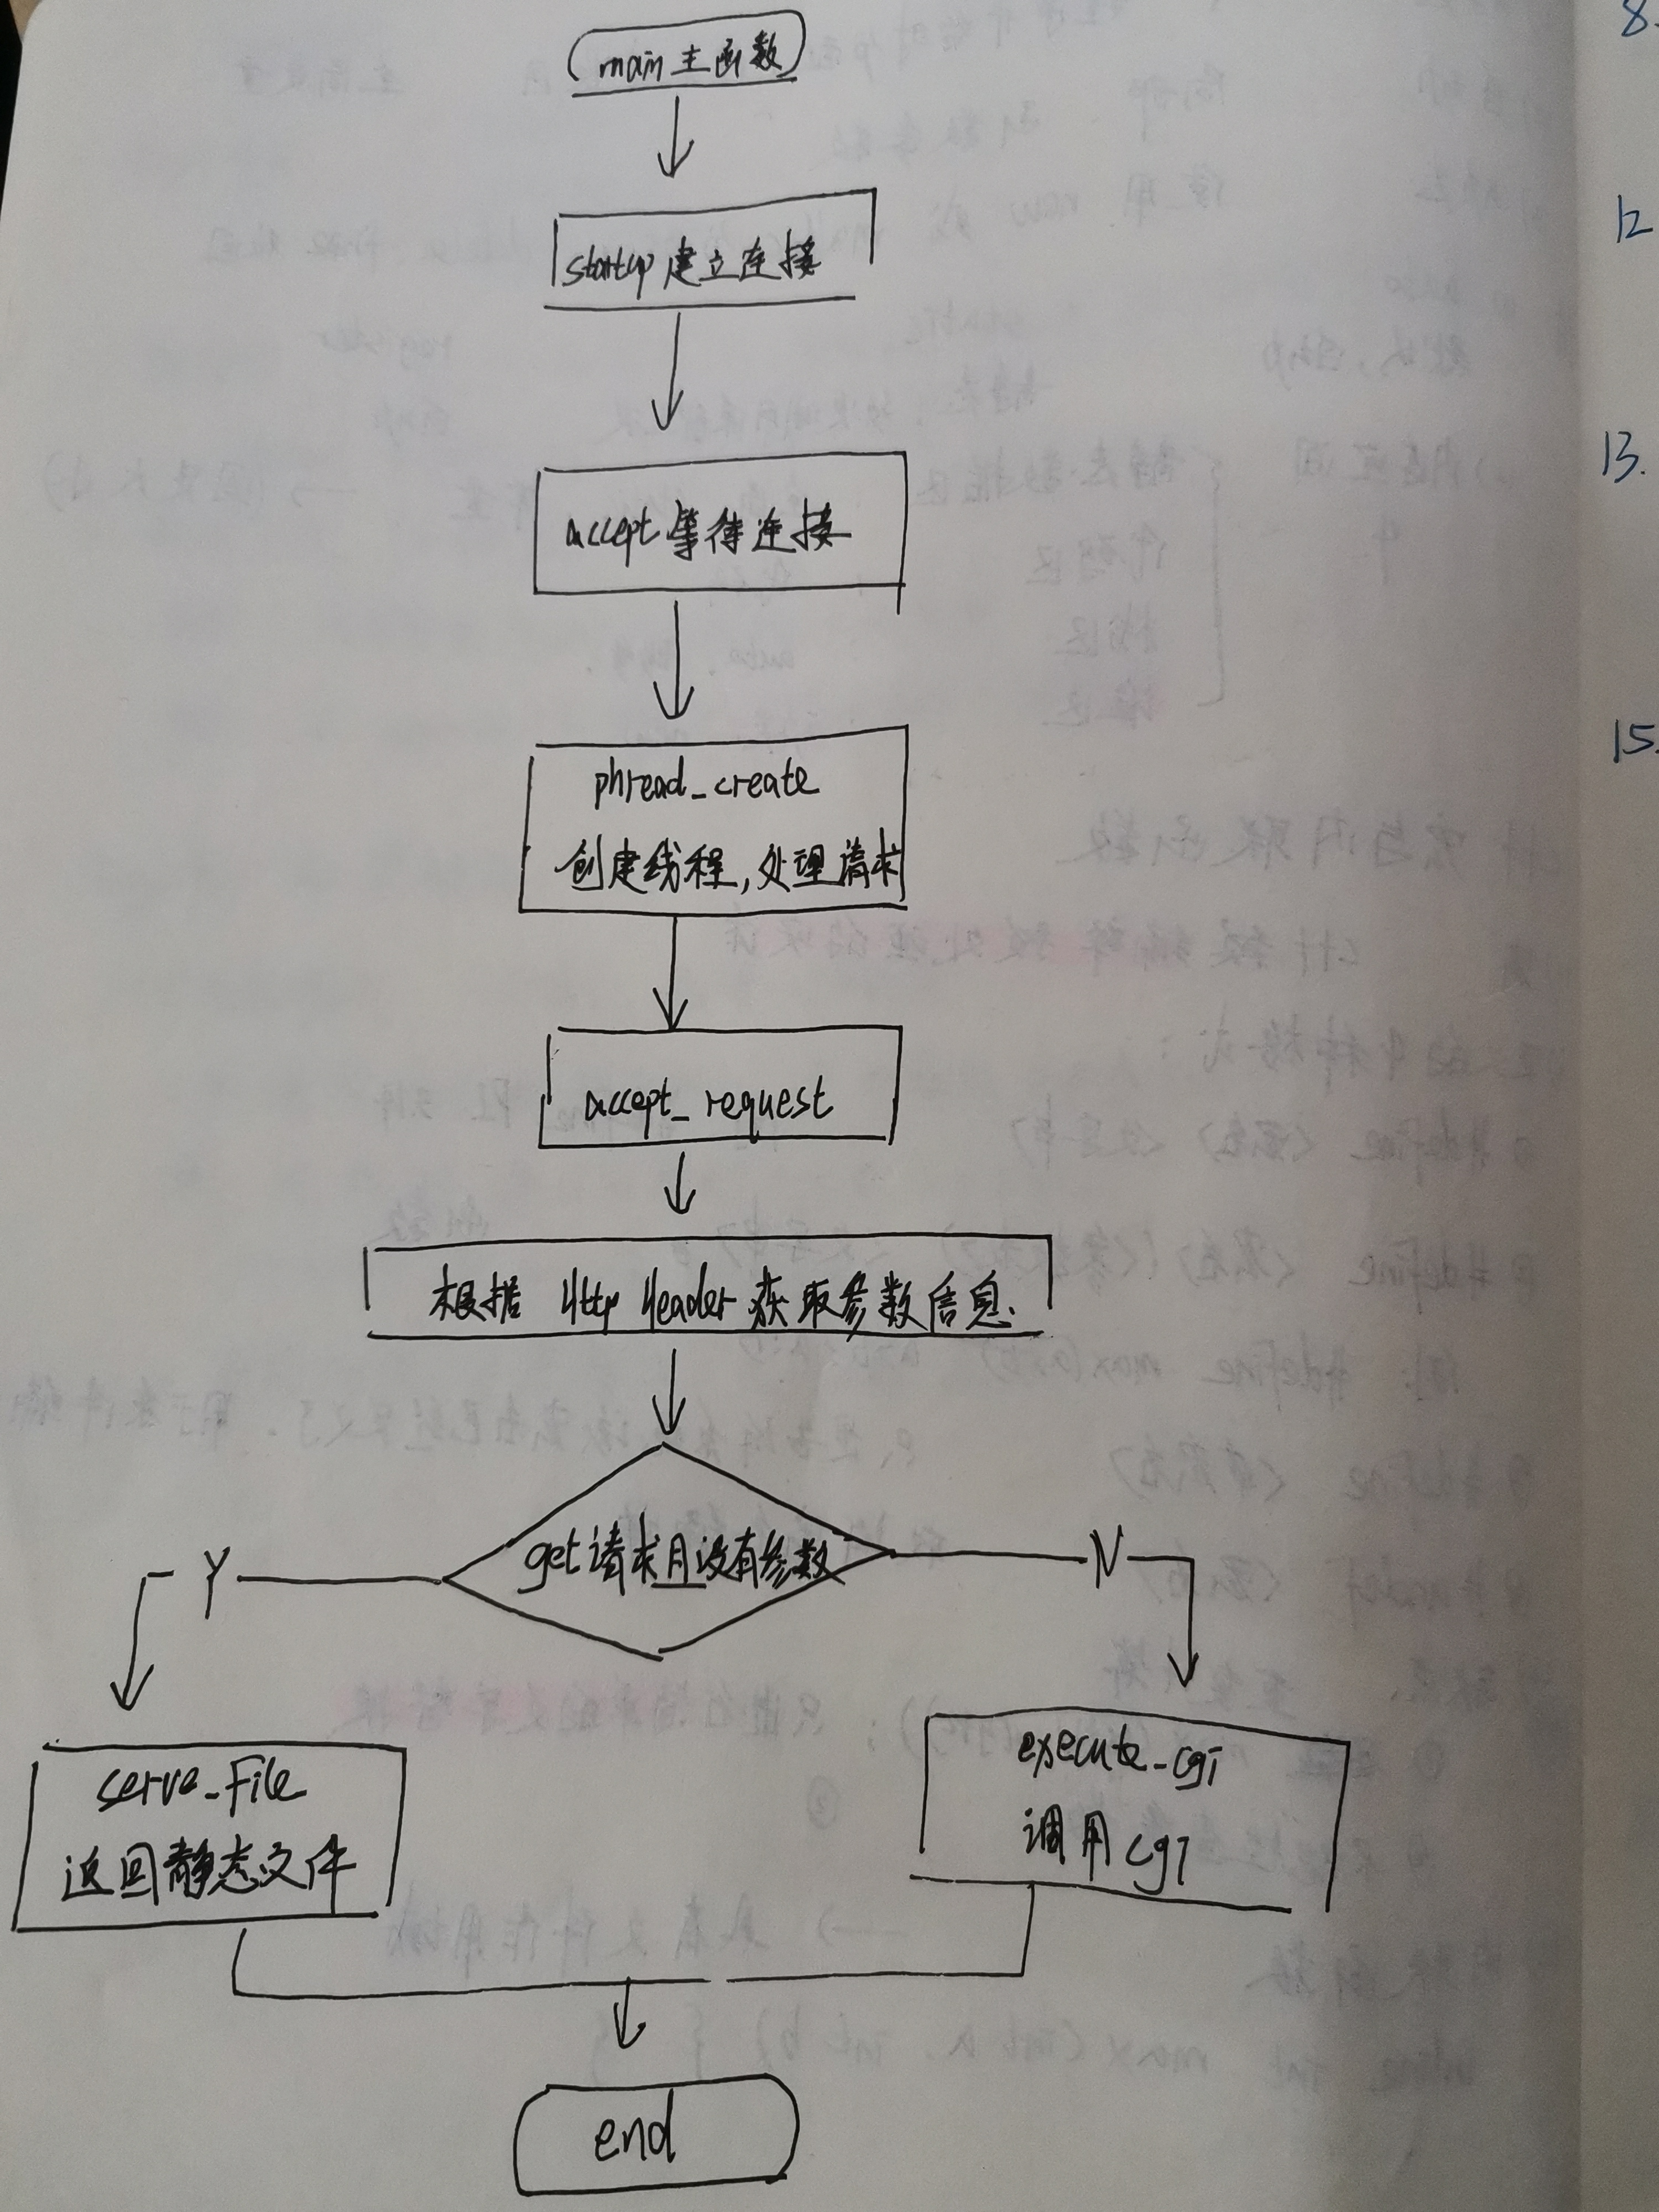 main 主函数
startup 建立连接
accept 等待连接
phread_create
创建线程,处理请求
accept_request
根据 Http Header 获取参数信息.
get请求且没有参数
Y
N
serve_File
返回静态文件
execute_cgi
调用 cgi
end
8.
12
13.
15.